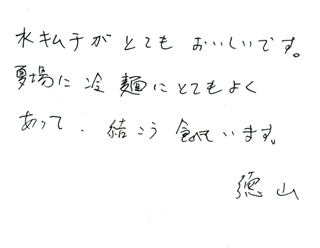 水キムチがとてもおいしいです。
夏場に冷麺にとてもよく
あって、結こう食べています。
徳山